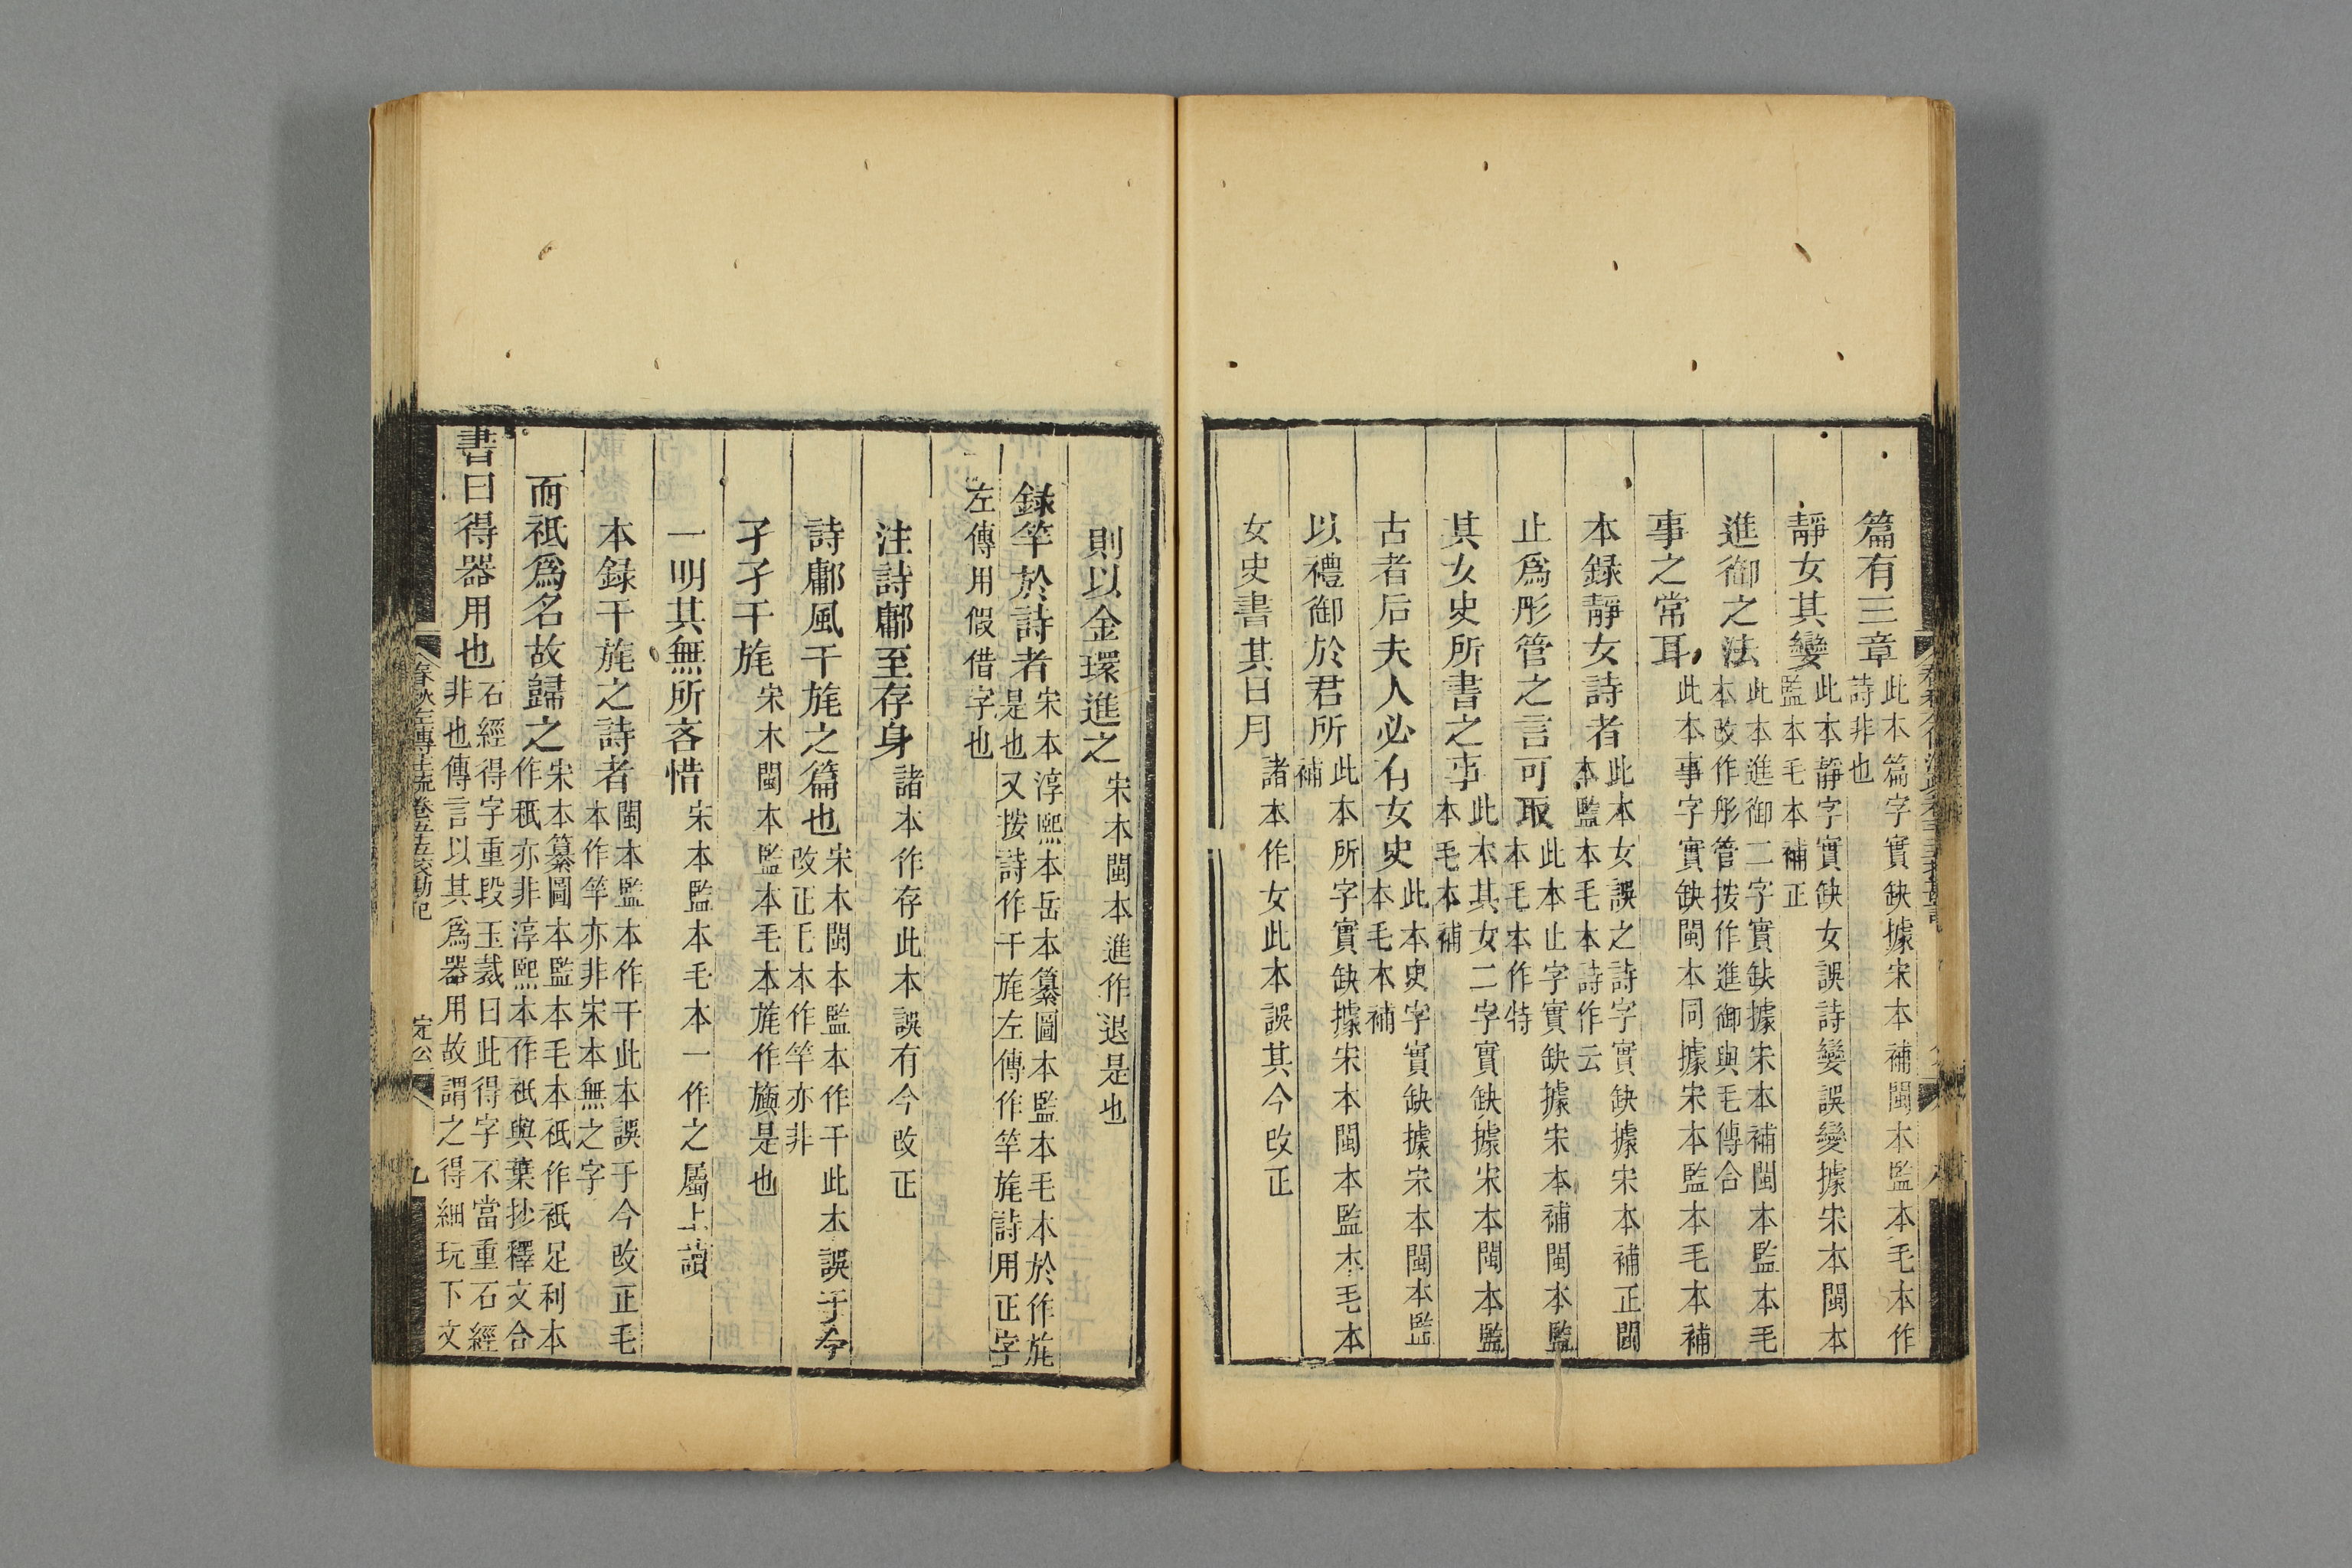 篇有三章此本篇字實缺據宋本補閩本監本毛本作詩非也
靜女其孌此本靜字實缺女誤詩孌誤變據宋本閩本監本毛本補正
進御之法此本進御二字實缺據宋本補閩本監本毛本改作彤管按作進御與毛傳合
事之常耳此本事字實缺閩本同據宋本監本毛本補
本録靜女詩者此本女誤之詩字實缺據宋本補正閩本監本毛本詩作云
止爲彤管之言可取此本止字實缺據宋本補閩本監本毛本作特
其女史所書之事此本其女二字實缺據宋本閩本監本毛本補
古者后夫人必有女史此本史字實缺據宋本閩本監本毛本補
以禮御於君所此本所字實缺據宋本閩本監本毛本補
女史書其日月諸本作女此本誤其今改正
則以金環進之宋本閩本進作退是也
録竿於詩者宋本淳熙本岳本纂圖本監本毛本於作旄是也又按詩作干旄左傳作竿旄詩用正字
左傳用假借字也
注詩鄘至存身諸本作存此本誤有今改正
詩鄘風干旄之篇也宋本閩本監本作干此本誤于今改正毛本作竿亦非
孑孑干旄宋本閩本監本毛本旄作旟是也
一明其無所吝惜宋本監本毛本一作之屬上讀
本録干旄之詩者閩本監本作干此本誤于今改正毛本作竿亦非宋本無之字
而祗爲名故歸之宋本纂圖本監本毛本祗作衹足利本作秖亦非淳熙本作祇與葉抄釋文合
書曰得器用也石經得字重段玉裁曰此得字不當重石經非也傳言以其爲器用故謂之得細玩下文
春秋左傳注疏卷五十五校勘記 定公 九